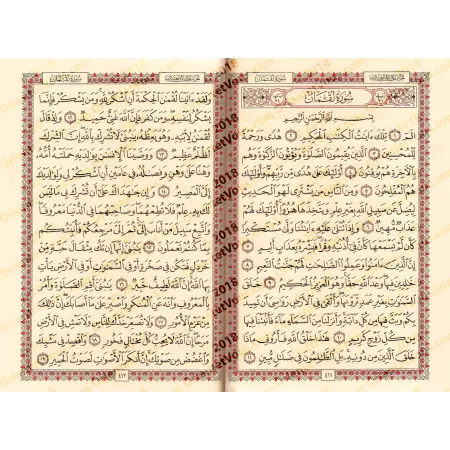 سورة لقمان
سُورَةُ لُقْمَان
بِسْمِ اللَّهِ الرَّحْمَٰنِ الرَّحِيمِ
الٓمٓ ١ تِلْكَ ءَايَٰتُ الْكِتَٰبِ الْحَكِيمِ ٢ هُدًى وَرَحْمَةً
لِّلْمُحْسِنِينَ ٣ الَّذِينَ يُقِيمُونَ الصَّلَوٰةَ وَيُؤْتُونَ الزَّكَوٰةَ وَهُم
بِالْءَاخِرَةِ هُمْ يُوقِنُونَ ٤ أُوْلَٰٓئِكَ عَلَىٰ هُدًى مِّن رَّبِّهِمْ وَأُوْلَٰٓئِكَ
هُمُ الْمُفْلِحُونَ ٥ وَمِنَ النَّاسِ مَن يَشْتَرِى لَهْوَ الْحَدِيثِ
لِيُضِلَّ عَن سَبِيلِ اللَّهِ بِغَيْرِ عِلْمٍ وَيَتَّخِذَهَا هُزُوًا أُوْلَٰٓئِكَ لَهُمْ
عَذَابٌ مُّهِينٌ ٦ وَإِذَا تُتْلَىٰ عَلَيْهِ ءَايَٰتُنَا وَلَّىٰ مُسْتَكْبِرًا
كَأَن لَّمْ يَسْمَعْهَا كَأَنَّ فِىٓ أُذُنَيْهِ وَقْرًا فَبَشِّرْهُ بِعَذَابٍ أَلِيمٍ ٧
إِنَّ الَّذِينَ ءَامَنُوا وَعَمِلُوا الصَّٰلِحَٰتِ لَهُمْ جَنَّٰتُ النَّعِيمِ ٨
خَٰلِدِينَ فِيهَا وَعْدَ اللَّهِ حَقًّا وَهُوَ الْعَزِيزُ الْحَكِيمُ ٩ خَلَقَ
السَّمَٰوَٰتِ بِغَيْرِ عَمَدٍ تَرَوْنَهَا وَأَلْقَىٰ فِى الْأَرْضِ رَوَٰسِىَ أَن تَمِيدَ
بِكُمْ وَبَثَّ فِيهَا مِن كُلِّ دَآبَّةٍ وَأَنزَلْنَا مِنَ السَّمَآءِ مَآءً فَأَنبَتْنَا فِيهَا
مِن كُلِّ زَوْجٍ كَرِيمٍ ١٠ هَٰذَا خَلْقُ اللَّهِ فَأَرُونِى مَاذَا
خَلَقَ الَّذِينَ مِن دُونِهِ بَلِ الظَّٰلِمُونَ فِى ضَلَٰلٍ مُّبِينٍ ١١
٤١١
سورة لقمان
وَلَقَدْ ءَاتَيْنَا لُقْمَٰنَ الْحِكْمَةَ أَنِ اشْكُرْ لِلَّهِ وَمَن يَشْكُرْ فَإِنَّمَا
يَشْكُرُ لِنَفْسِهِ وَمَن كَفَرَ فَإِنَّ اللَّهَ غَنِىٌّ حَمِيدٌ ١٢ وَإِذْ قَالَ
لُقْمَٰنُ لِابْنِهِ وَهُوَ يَعِظُهُ يَٰبُنَىَّ لَا تُشْرِكْ بِاللَّهِ إِنَّ الشِّرْكَ
لَظُلْمٌ عَظِيمٌ ١٣ وَوَصَّيْنَا الْإِنسَٰنَ بِوَٰلِدَيْهِ حَمَلَتْهُ أُمُّهُ
وَهْنًا عَلَىٰ وَهْنٍ وَفِصَٰلُهُ فِى عَامَيْنِ أَنِ اشْكُرْ لِى وَلِوَٰلِدَيْكَ
إِلَىَّ الْمَصِيرُ ١٤ وَإِن جَٰهَدَاكَ عَلَىٰٓ أَن تُشْرِكَ بِى مَا لَيْسَ
لَكَ بِهِ عِلْمٌ فَلَا تُطِعْهُمَا وَصَاحِبْهُمَا فِى الدُّنْيَا مَعْرُوفًا
وَاتَّبِعْ سَبِيلَ مَنْ أَنَابَ إِلَىَّ ثُمَّ إِلَىَّ مَرْجِعُكُمْ فَأُنَبِّئُكُم
بِمَا كُنتُمْ تَعْمَلُونَ ١٥ يَٰبُنَىَّ إِنَّهَآ إِن تَكُ مِثْقَالَ حَبَّةٍ مِّنْ
خَرْدَلٍ فَتَكُن فِى صَخْرَةٍ أَوْ فِى السَّمَٰوَٰتِ أَوْ فِى الْأَرْضِ يَأْتِ
بِهَا اللَّهُ إِنَّ اللَّهَ لَطِيفٌ خَبِيرٌ ١٦ يَٰبُنَىَّ أَقِمِ الصَّلَوٰةَ وَأْمُرْ
بِالْمَعْرُوفِ وَانْهَ عَنِ الْمُنكَرِ وَاصْبِرْ عَلَىٰ مَآ أَصَابَكَ إِنَّ ذَٰلِكَ
مِنْ عَزْمِ الْأُمُورِ ١٧ وَلَا تُصَعِّرْ خَدَّكَ لِلنَّاسِ وَلَا تَمْشِ فِى الْأَرْضِ
مَرَحًا إِنَّ اللَّهَ لَا يُحِبُّ كُلَّ مُخْتَالٍ فَخُورٍ ١٨ وَاقْصِدْ فِى مَشْيِكَ
وَاغْضُضْ مِن صَوْتِكَ إِنَّ أَنكَرَ الْأَصْوَٰتِ لَصَوْتُ الْحَمِيرِ ١٩
٤١٢